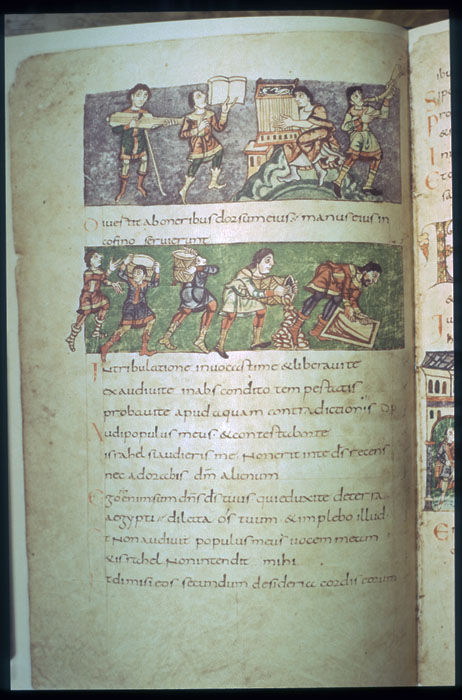 Diuertit ab oneribus dorsum eius & manus eius in
cofino seruierunt
Intribulatione inuocastime & liberauite
exaudiuite inabscondito tempestatis
probauite apud aquam contradictionis
Audi populus meus & contestabor te
israhel siaudieris me Nonerit inte ds recens
nec adorabis dm alienum
Ego enim sum dns ds tuus qui eduxi te deterra
aegypti dilata os tuum & implebo illud
&Non audiuit populus meus uocem meam
& israhel Non intendit mihi
&dimisi eos secundum desideria cordis eorum